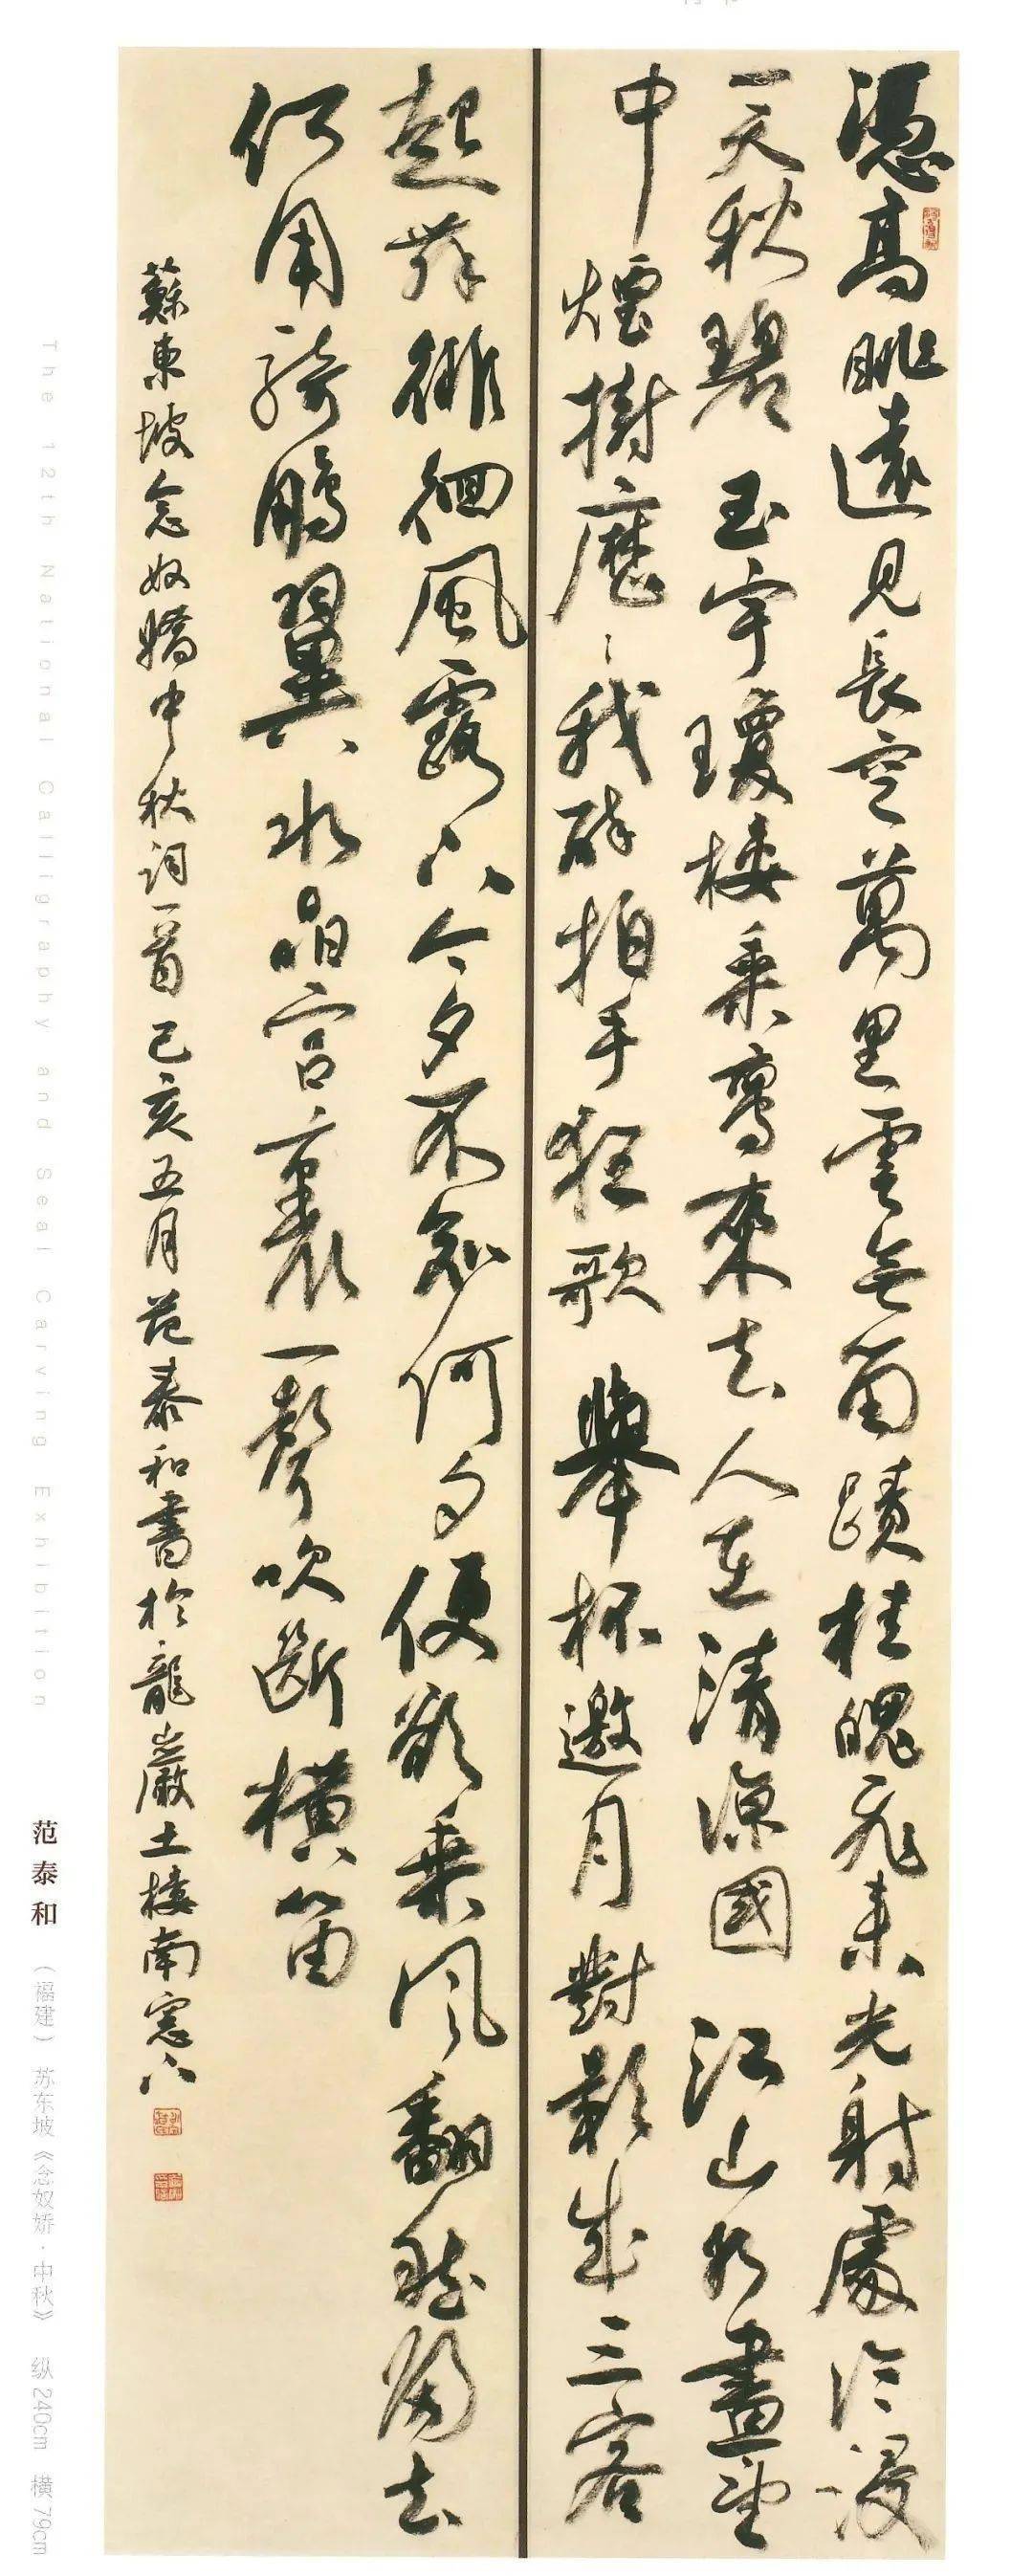 憑高眺遠見長空萬里雲無留蹟桂魄飛来光射處冷浸
一天秋碧玉宇瓊樓乘鸞來去人在清涼國江山如畫望
中煙樹歷〻我醉拍手狂歌舉杯邀月對影成三客
起舞徘徊風露下今夕不知何夕便欲乘風翻然歸去
何用騎鵬翼水晶宮裏一聲吹斷橫笛
蘇東坡念奴嬌中秋詞一首己亥五月范泰和書於龍巖土樓南窓下
The 12th National Calligraphy and Seal Carving Exhibition
范泰和（福建） 苏东坡《念奴娇·中秋》 纵240cm 横79cm